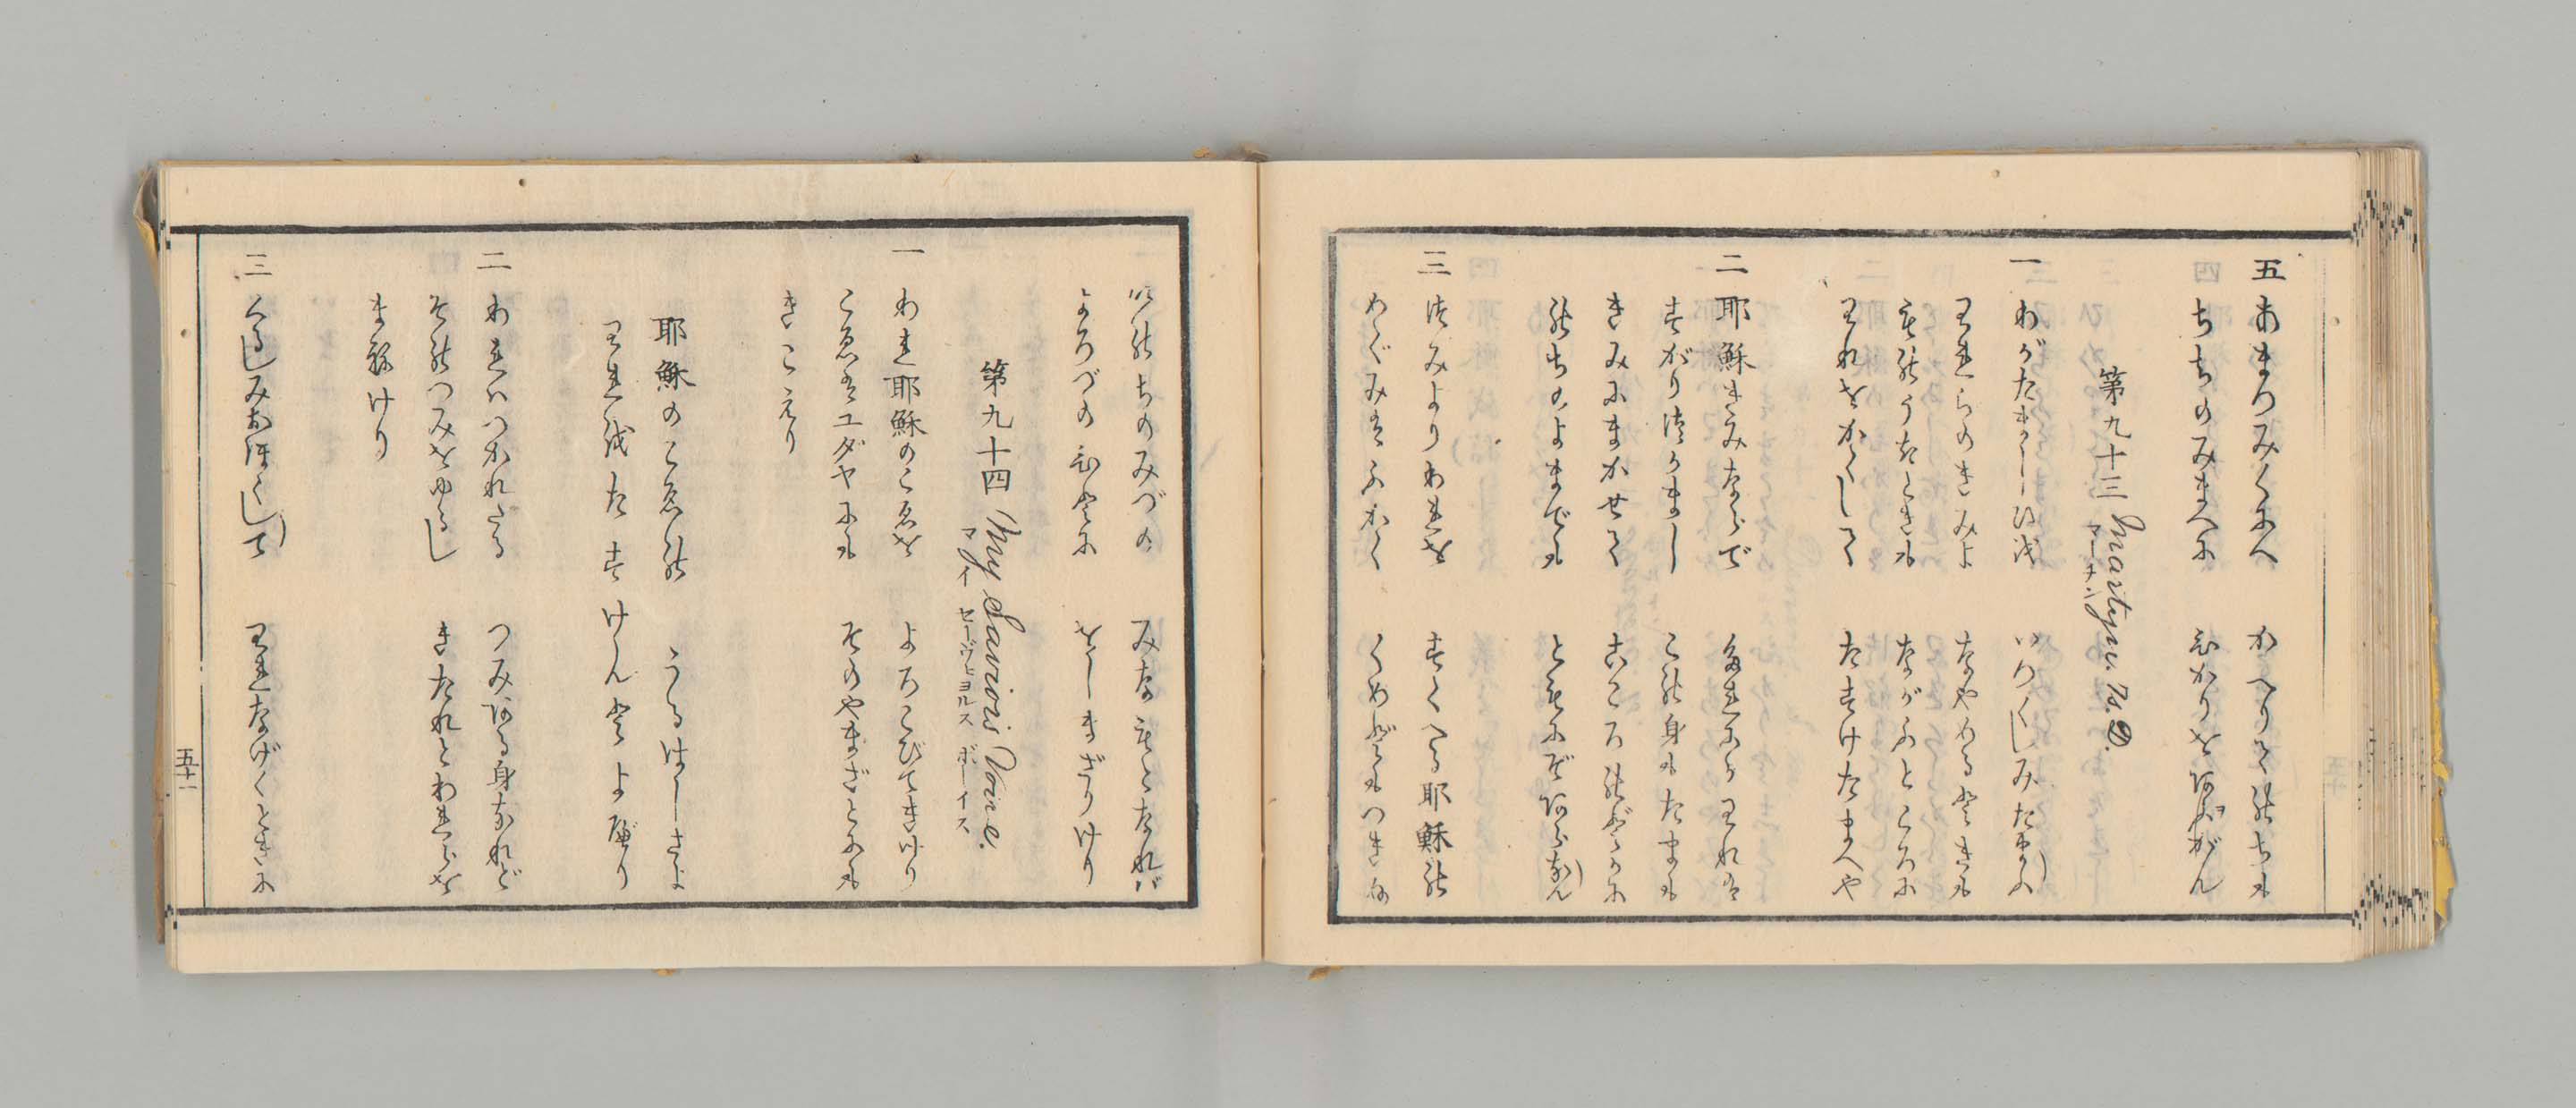 五 あまつみくにへ かへりてのちも
ちちのみまへに ひかりをあふがん
第九十三 Martyn. 7s. D.
マーチン
一 わがたましひを いつくしみたまふ
われらのきみよ なやめるときも
そのうきときも ながふところに
われをかくして たすけたまへや
二 耶穌きみならで たれにかわれは
すがりつかまし この身もたまも
きみにまかせて こころのどかに
のちのよまでも ともにぞあらなん
三 つみよりわれを すくへる耶穌の
めぐみはふかく くめどもつきぬ
いのちのみづの みなもとなれば
よろづのひとに をしまざりけり
第九十四 My Saviors Voice.
マイ セーヴヒヨルス ボーイス
一 われ耶穌のこゑを よろこびてきけり
こゑはユダヤにも そのやまざとにも
きこえり
耶穌のこゑの うるはしさよ
われをたすけんとよべり
二 われはつかれたる つみある身なれど
そのつみをゆるし きたれとわれらを
まねけり
三 くるしみおほくして われなげくときに
五十一